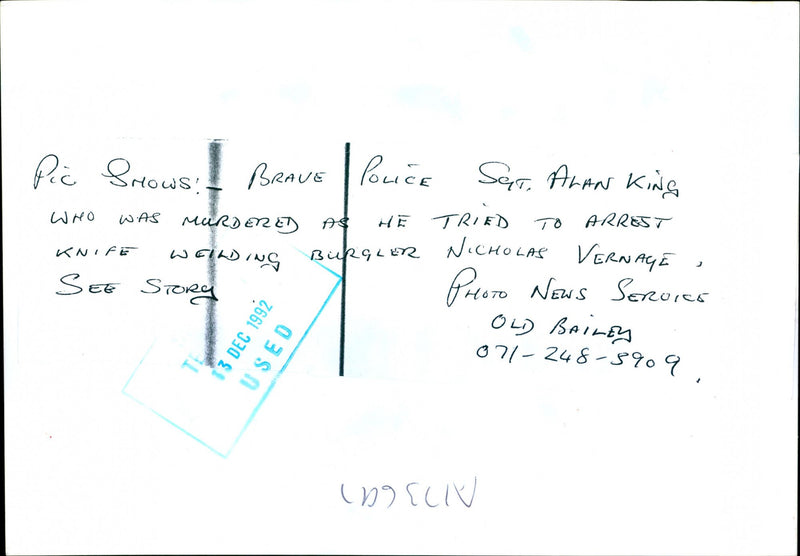 Pic Shows:- Brave Police Sgt. Alan King
who was murdered as he tried to arrest
knife weilding burgler Nicholas Vernage,
See Story
Photo News Service
Old Bailey
071-248-5909.
13 DEC 1992
USED